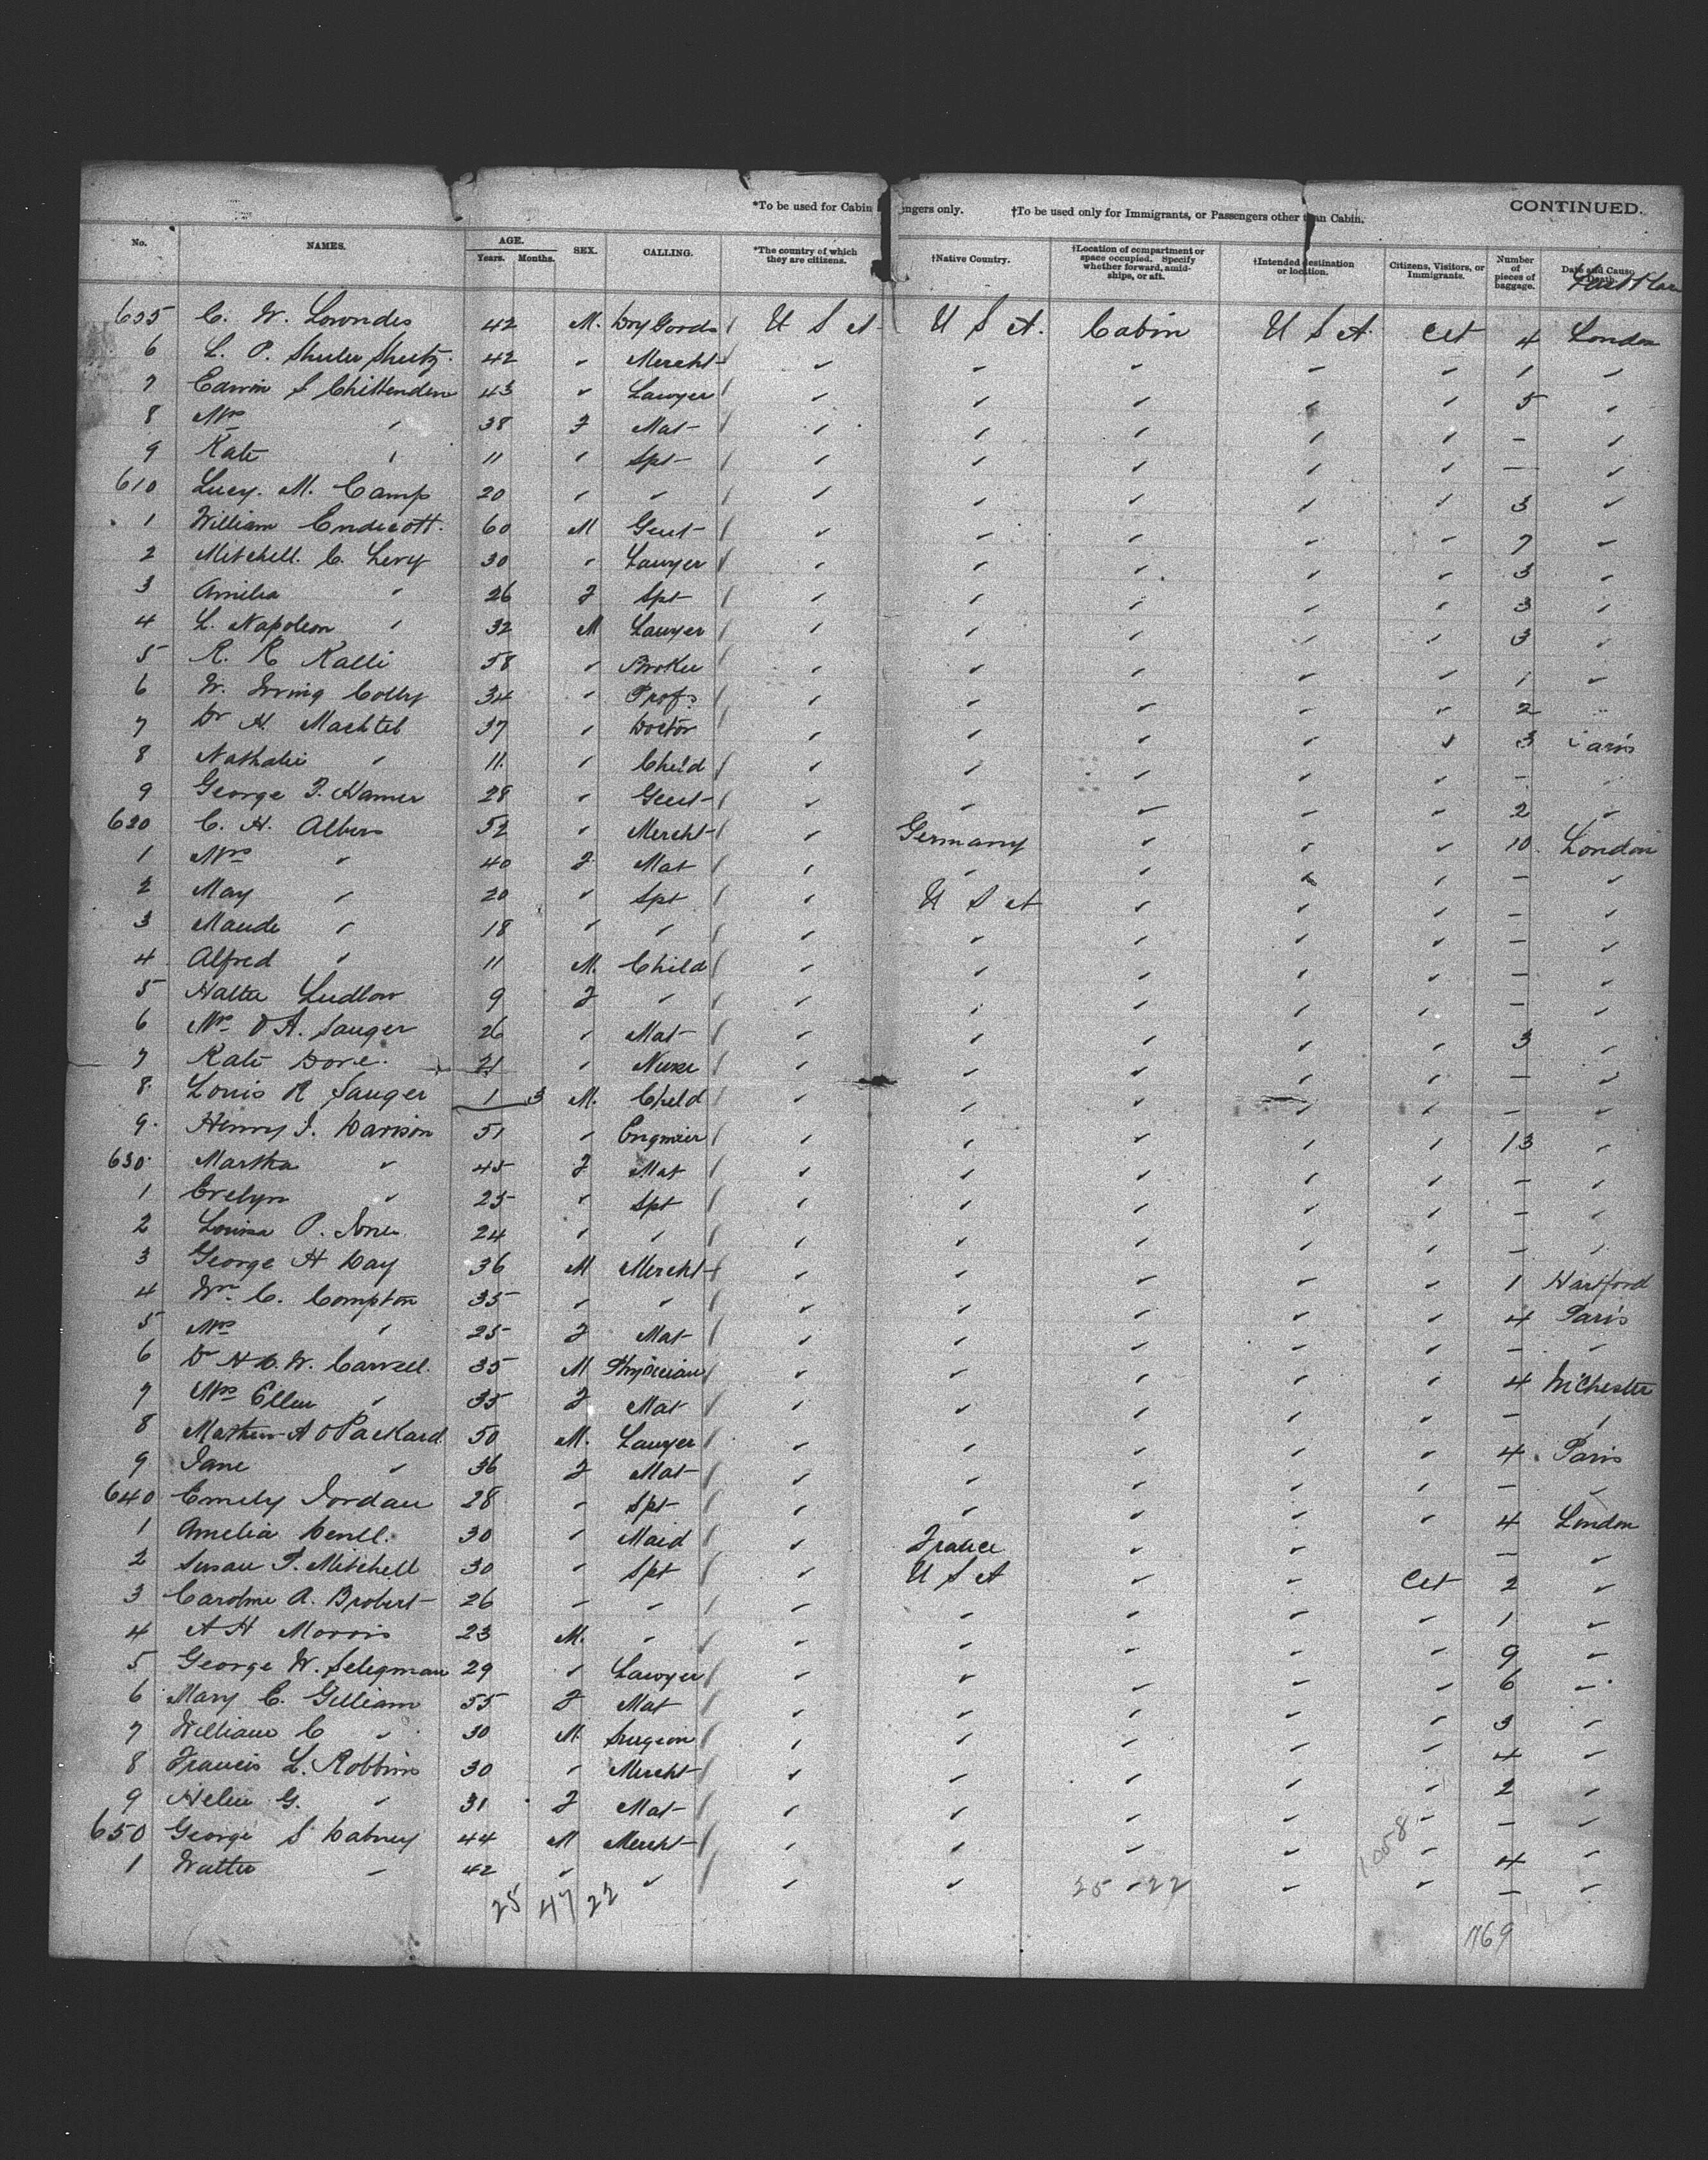 *To be used for Cabin engers only. †To be used only for Immigrants, or Passengers other than Cabin. CONTINUED.
No. NAMES. AGE. Years. Months. SEX. CALLING. *The country of which they are citizens. †Native Country. †Location of compartment or space occupied. Specify whether forward, amidships, or aft. †Intended destination or location. Citizens, Visitors, or Immigrants. Number of pieces of baggage. Date and Cause Death.
605 C. W. Lowndes 42 M. Dry Goods U S A U S A. Cabin U S A. Cit 4 London
6 L. P. Sheetz. 42 " Mercht " " " " " 1 "
7 Edwin S Chittenden 43 " Lawyer " " " " " 5 "
8 Mrs " 38 F Mat " " " " " — "
9 Kate " 11 " Spt " " " " " — "
610 Lucy. M. Camp 20 " " " " " " " 3 "
1 William Endicott. 60 M Gent " " " " " 7 "
2 Mitchell. C. Levy 30 " Lawyer " " " " " 3 "
3 Amelia " 26 F Spt " " " " " 3 "
4 L. Napoleon " 32 M Lawyer " " " " " 3 "
5 R. R Ralli 58 " Broker " " " " " 1 "
6 W. Irving Colby 34 " Prof. " " " " " 2 "
7 Dr H. Machtel 37 " Doctor " " " " " 3 Paris
8 Nathalie " 11. " Child " " " " " — "
9 George F. Hamer 28 " Gent " " " " " 2 "
620 C. H. Albers 52 " Mercht " Germany " " " 10 London
1 Mrs " 40 F Mat " " " " " — "
2 May " 20 " Spt " U S A " " " — "
3 Maude " 18 " " " " " " " — "
4 Alfred " 11 M. Child " " " " " — "
5 Hattie Ludlow 9 F " " " " " " — "
6 Mrs D A. Sauger 26 " Mat " " " " " 3 "
7 Kate Dore. 21 " Nurse " " " " " — "
8. Louis R Sauger 1 3 M. Child " " " " " — "
9. Henry J. Davison 51 " Engineer " " " " " 13 "
630. Martha " 45 F Mat " " " " " — "
1 Evelyn " 25 " Spt " " " " " — "
2 Louisa P. 24 " " " " " " " — "
3 George H Day 36 M Mercht " " " " " 1 Hartford
4 Wm C. Compton 35 " " " " " " " 4 Paris
5 Mrs " 25 F Mat " " " " " — "
6 Dr H D. W. Carvell. 35 M Physician " " " " " 4
7 Mrs Ellen " 35 F Mat " " " " " — "
8 Mathew A O Packard 50 M. Lawyer " " " " " 4 Paris
9 Jane " 36 F Mat " " " " " — "
640 Emily Jordan 28 " Spt " " " " " 4 London
1 Amelia 30 " Maid " France " " — "
2 Susan T. Mitchell 30 " Spt " U S A " " Cit 2 "
3 Caroline A. Brobert 26 " " " " " " " 1 "
4 A H Morris 23 M. " " " " " " 9 "
5 George W. Seligman 29 " Lawyer " " " " " 6 "
6 Mary C. Gilliam 55 F Mat " " " " " 3 "
7 William C " 30 M. Surgeon " " " " " 4 "
8 Francis L. Robbins 30 " Mercht " " " " " 2 "
9 Helen G. " 31 F Mat " " " " " — "
650 George S Dabney 44 M Mercht " " " " " 4 "
1 Walter " 42 " " " " " " " — "
25 47 22 25 - 22 1008
1169